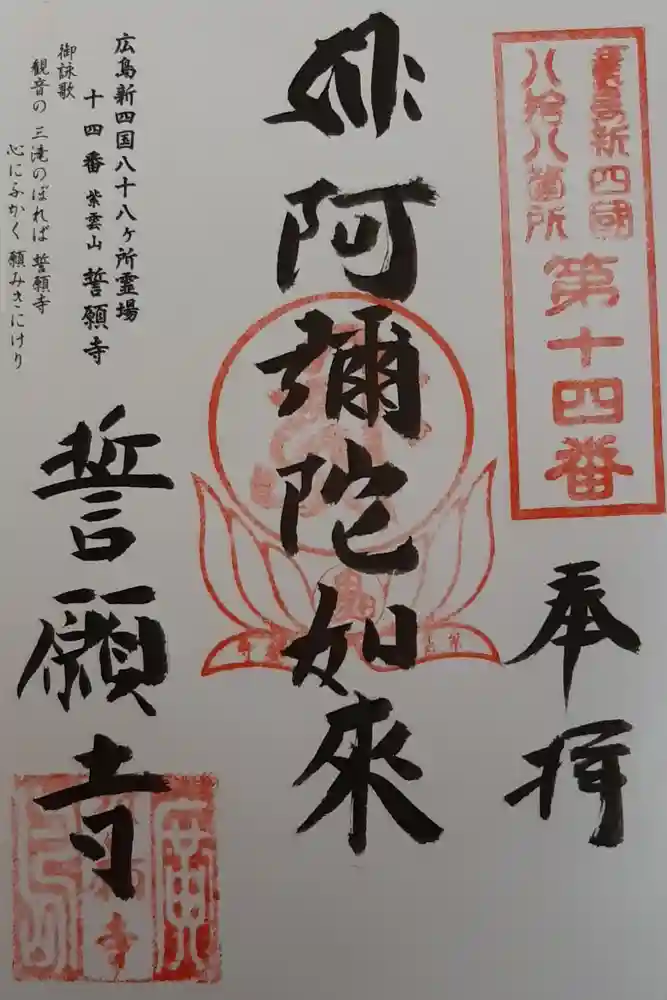 廣島新四國
八拾八箇所
第十四番
奉拝
阿彌陀如來
広島新四国八十八ヶ所霊場
十四番 紫雲山 誓願寺
御詠歌
観音の 三滝のぼれば 誓願寺
心にふかく 願みきにけり
誓願寺